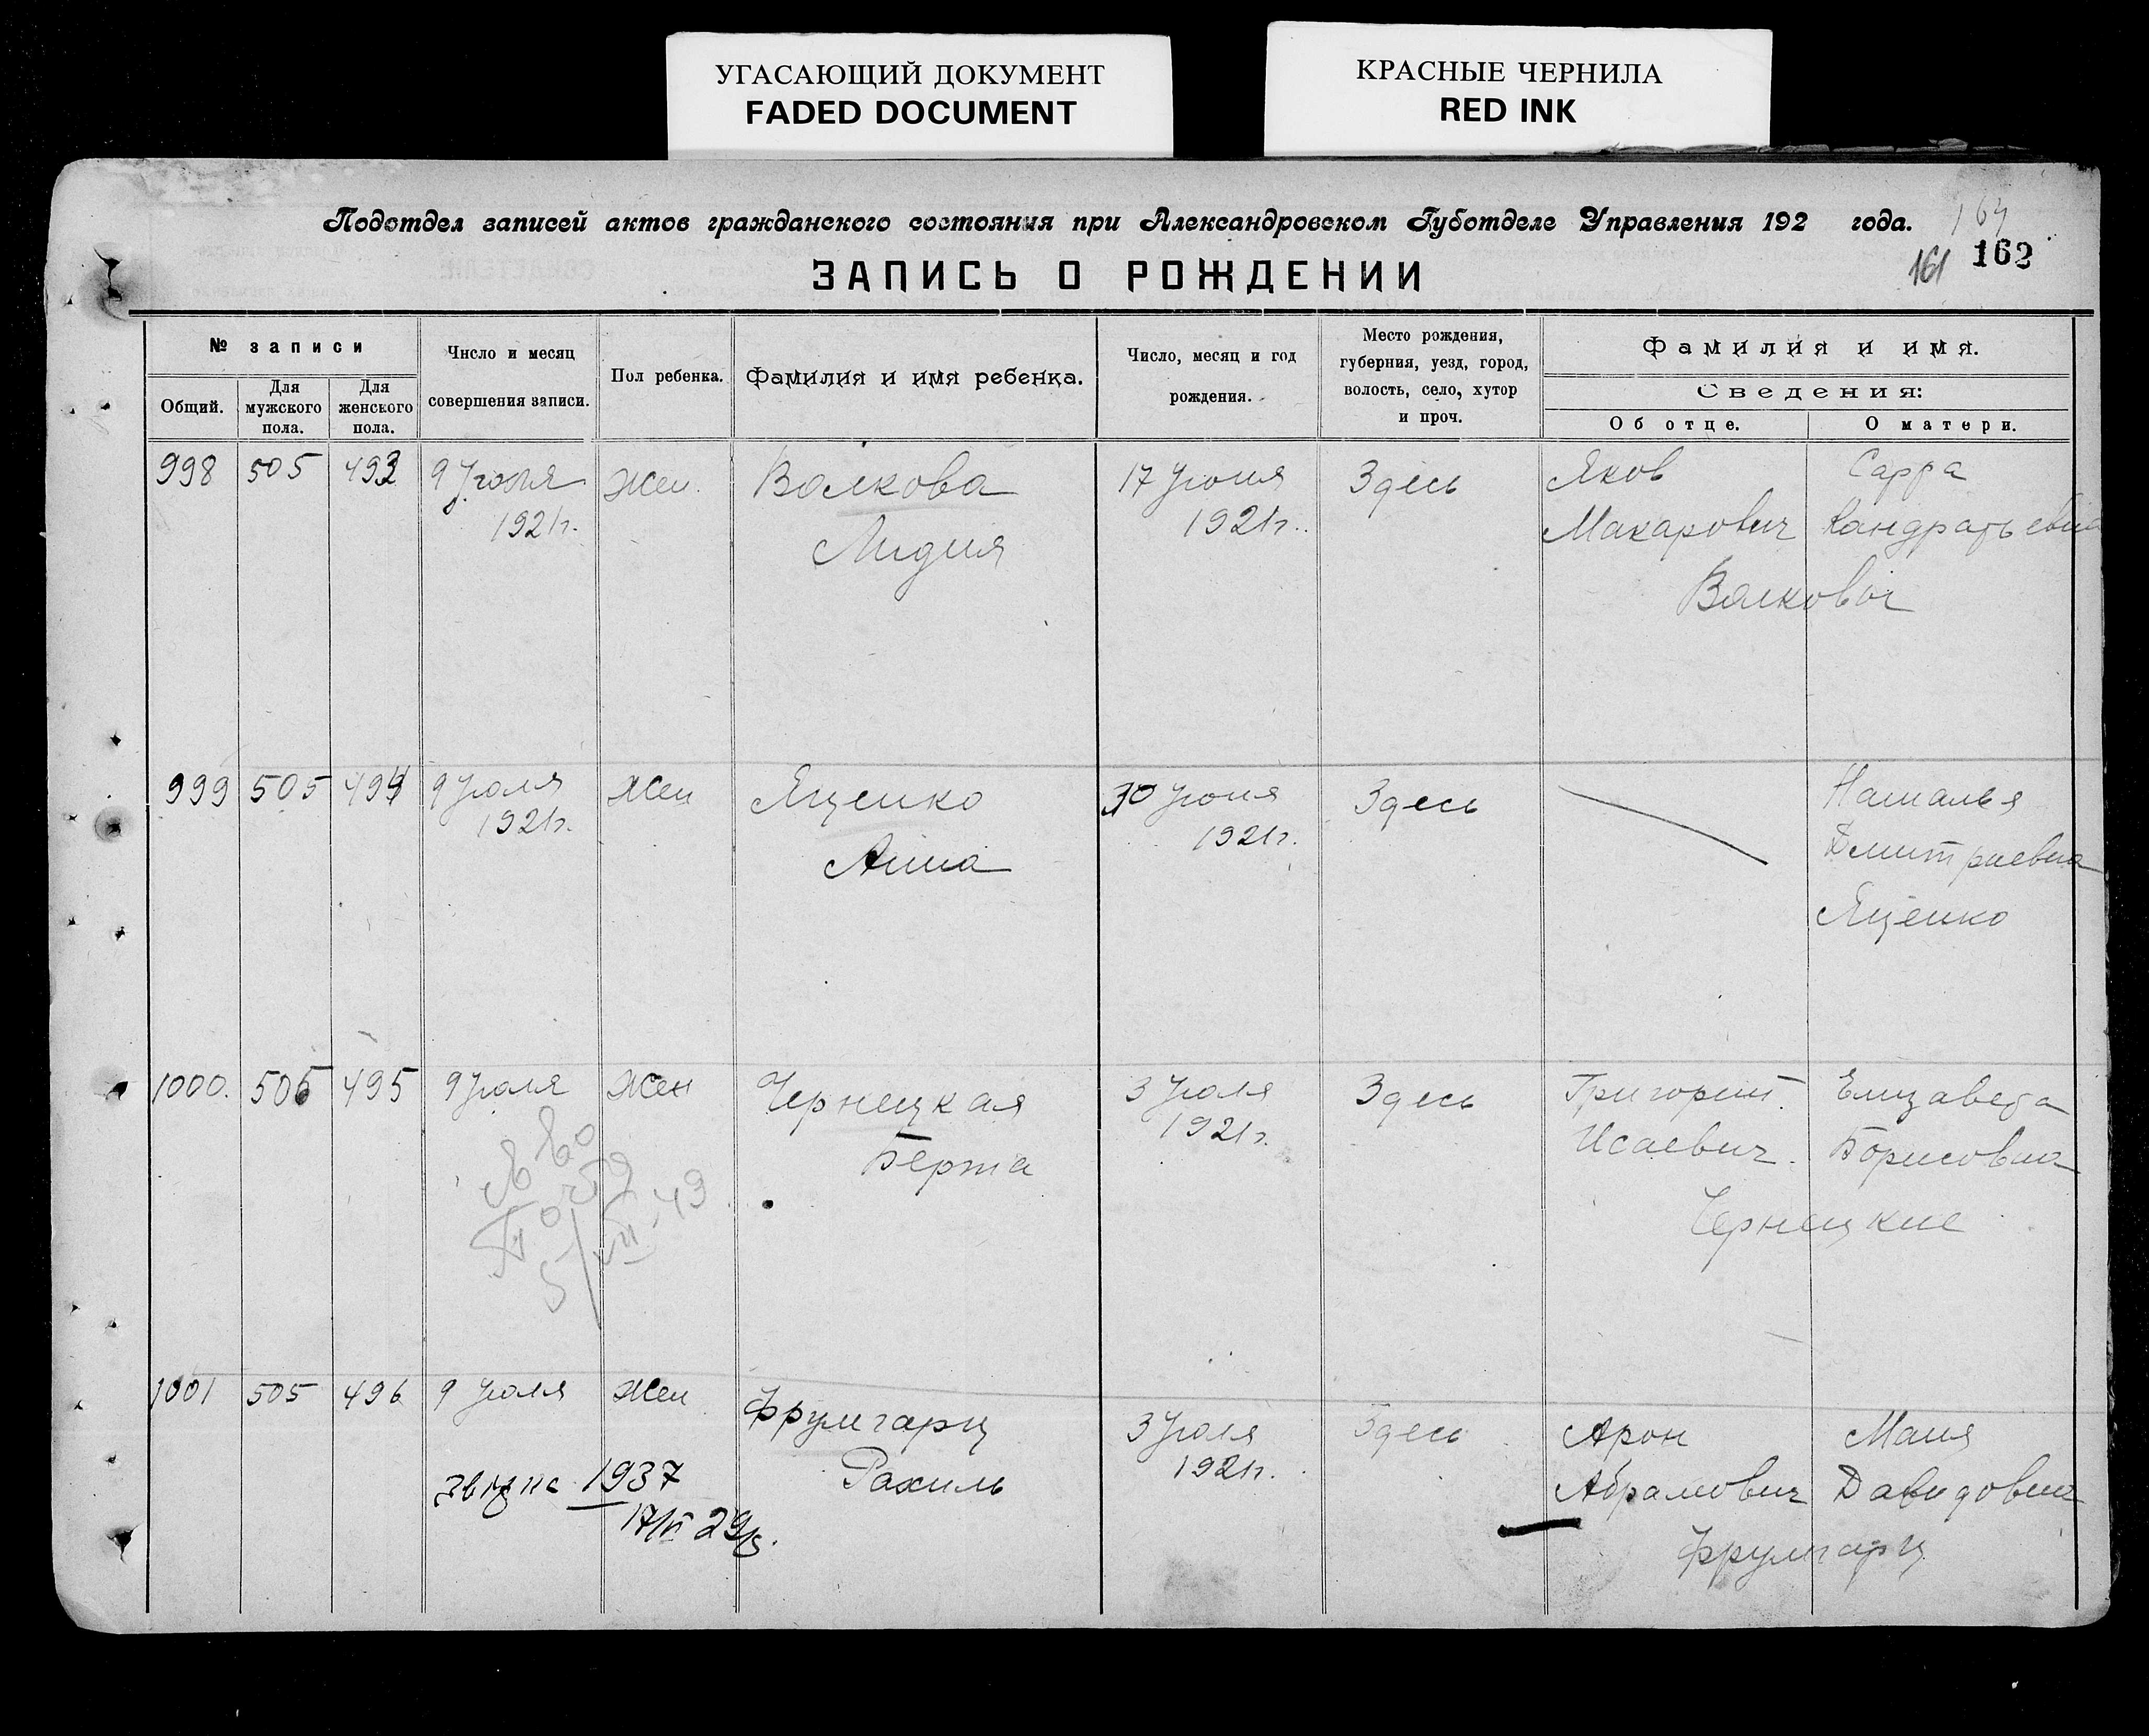 УГАСАЮЩИЙ ДОКУМЕНТ
FADED DOCUMENT
КРАСНЫЕ ЧЕРНИЛА
RED INK
Подотдел записей актов гражданского состояния при Александровском Губотделе Управления 192 года.
164
161 162
ЗАПИСЬ О РОЖДЕНИИ
№ записи
Общий.
Для мужского пола.
Для женского пола.
Число и месяц
совершения записи.
Пол ребенка.
Фамилия и имя ребенка.
Число, месяц и год
рождения.
Место рождения,
губерния, уезд, город,
волость, село, хутор
и проч.
Фамилия и имя.
Сведения:
Об отце.
О матери.
998 505 493 9 Июля Жен. Волкова 17 Июня Здесь Яков Сарра
1921г. Лидия 1921г. Макарович Кандратьевна
Волковы
999 505 494 9 Июля Жен Яценко 30 Июня Здесь Наталья
1921г. Анна 1921г. Дмитриевна
Яценко
1000. 505 495 9 Июля Жен Чернецкая 3 Июля Здесь Григорий Елизавета
Берта 1921г. Исаевич. Борисовна
Чернецкие
5/VII-43
1001 505 496 9 Июля Жен Фрумгарц 3 Июля Здесь Арон Маня
Рахиль 1921г. Абрамович Давидовна
Фрумгарц
1937